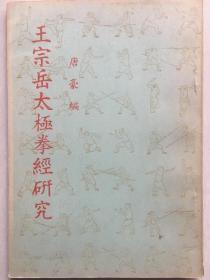 王宗岳太極拳經研究
唐豪編